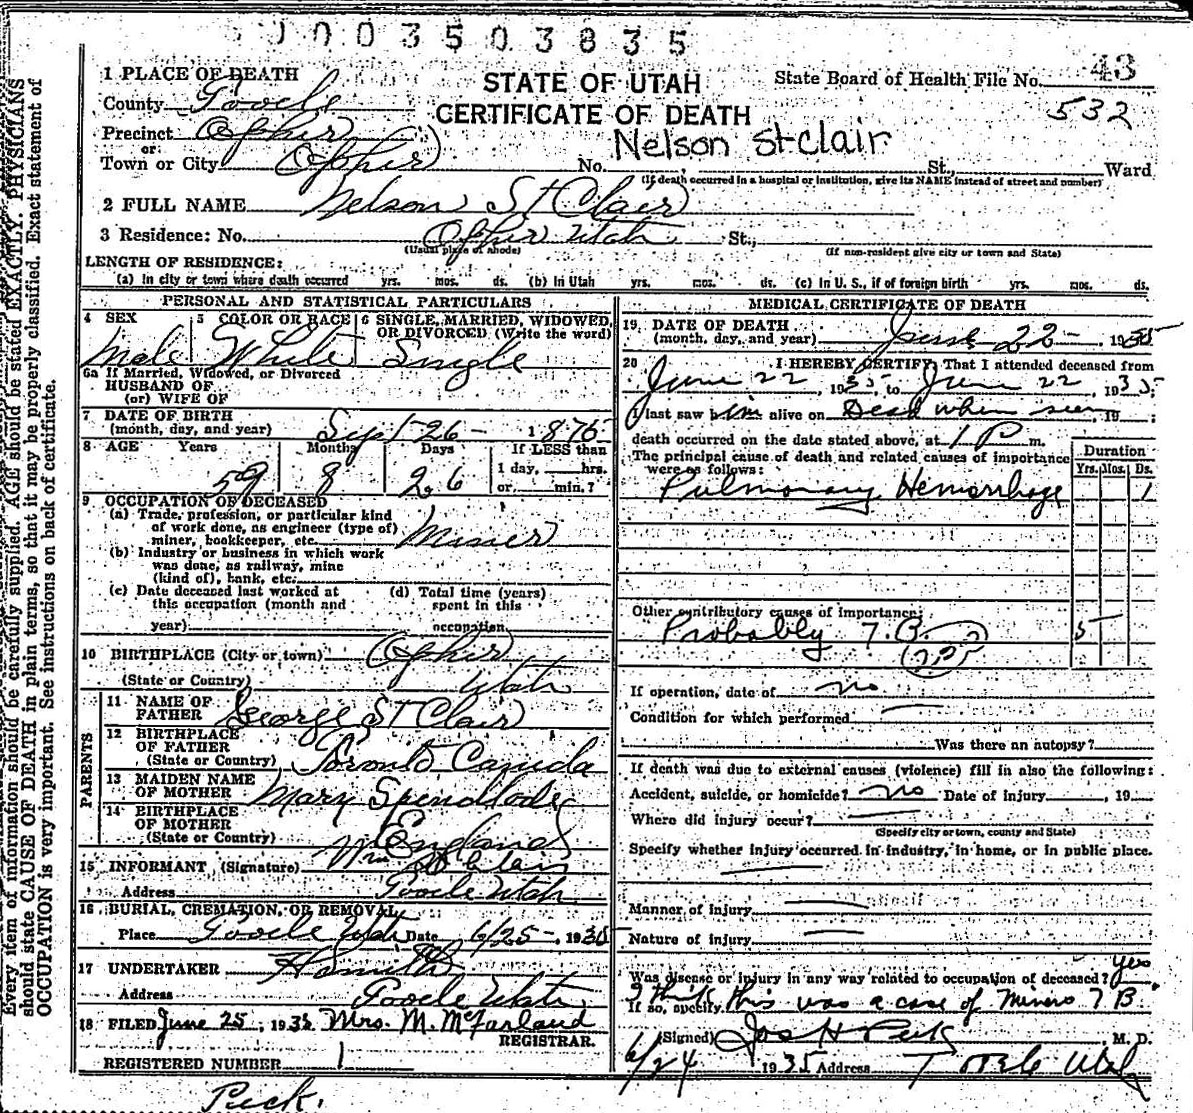 0003503835
1 PLACE OF DEATH
STATE OF UTAH
CERTIFICATE OF DEATH
State Board of Health File No. 43
532
County Tooele
Precinct Ophir
or
Town or City Ophir No. Nelson St clair St., Ward
(If death occurred in a hospital or institution, give its NAME instead of street and number)
2 FULL NAME Nelson St Clair
3 Residence: No. Ophir Utah St.,
(Usual place of abode) (If non-resident give city or town and State)
LENGTH OF RESIDENCE:
(a) In city or town where death occurred yrs. mos. ds. (b) In Utah yrs. mos. ds. (c) In U. S., if of foreign birth yrs. mos. ds.
PERSONAL AND STATISTICAL PARTICULARS
4 SEX Male
5 COLOR OR RACE White
6 SINGLE, MARRIED, WIDOWED, OR DIVORCED (Write the word) Single
6a If Married, Widowed, or Divorced
HUSBAND OF
(or) WIFE OF
7 DATE OF BIRTH
(month, day, and year) Sept 26 - 1875
8 AGE Years Months Days If LESS than
59 8 26 1 day, hrs.
or min.?
9 OCCUPATION OF DECEASED
(a) Trade, profession, or particular kind
of work done, as engineer (type of)
miner, bookkeeper, etc. Miner
(b) Industry or business in which work
was done, as railway, mine
(kind of), bank, etc.
(c) Date deceased last worked at
this occupation (month and
year)
(d) Total time (years)
spent in this
occupation
10 BIRTHPLACE (City or town) Ophir
(State or Country) Utah
PARENTS
11 NAME OF
FATHER George St Clair
12 BIRTHPLACE
OF FATHER
(State or Country) Toronto Canada
13 MAIDEN NAME
OF MOTHER Mary
14 BIRTHPLACE
OF MOTHER
(State or Country) England
15 INFORMANT (Signature) St Clair
Address Tooele Utah
16 BURIAL, CREMATION, OR REMOVAL
Place Tooele Utah Date 6/25 -, 1935
17 UNDERTAKER
Address Tooele Utah
18 FILED June 25, 1935 Mrs. M. McFarland
REGISTRAR.
REGISTERED NUMBER 1
Peck.
MEDICAL CERTIFICATE OF DEATH
19 DATE OF DEATH
(month, day, and year) June 22 -, 1935
20 I HEREBY CERTIFY, That I attended deceased from
June 22, 1935, to June 22, 1935;
I last saw him alive on Dead when seen, 19 ;
death occurred on the date stated above, at 1 P m.
The principal cause of death and related causes of importance
were as follows:
Duration
Yrs. Mos. Ds.
Pulmonary Hemorrhage 1
Other contributory causes of importance:
Probably T.B. 5
If operation, date of no
Condition for which performed
Was there an autopsy?
If death was due to external causes (violence) fill in also the following:
Accident, suicide, or homicide? no Date of injury , 19
Where did injury occur?
(Specify city or town, county and State)
Specify whether injury occurred in industry, in home, or in public place.
Manner of injury
Nature of injury
Was disease or injury in any way related to occupation of deceased? yes
If so, specify I think this was a case of miners T B.
(Signed) Jos H Peck, M. D.
6/24 1935 Address Tooele Utah
Every item of information should be carefully supplied. AGE should be stated EXACTLY. PHYSICIANS
should state CAUSE OF DEATH in plain terms, so that it may be properly classified. Exact statement of
OCCUPATION is very important. See instructions on back of certificate.